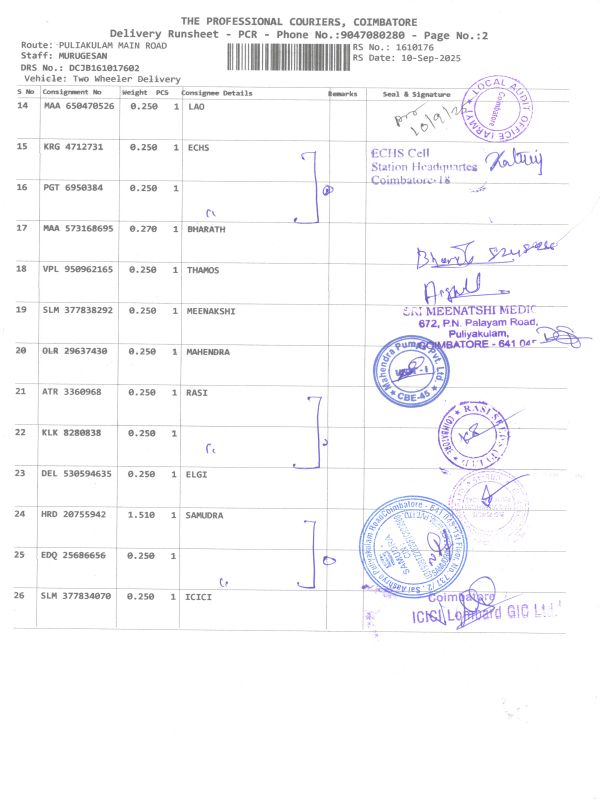 THE PROFESSIONAL COURIERS, COIMBATORE
Delivery Runsheet - PCR - Phone No.:9047080280 - Page No.:2
Route: PULIAKULAM MAIN ROAD
RS No.: 1610176
Staff: MURUGESAN
RS Date: 10-Sep-2025
DRS No.: DCJB161017602
Vehicle: Two Wheeler Delivery
S No Consignment No Weight PCS Consignee Details Remarks Seal & Signature
14 MAA 650470526 0.250 1 LAO
LOCAL AUDIT OFFICE (ARMY)
Coimbatore
15 KRG 4712731 0.250 1 ECHS
ECHS Cell
Station Headquarters
Coimbatore-18
16 PGT 6950384 0.250 1
17 MAA 573168695 0.270 1 BHARATH
18 VPL 950962165 0.250 1 THAMOS
19 SLM 377838292 0.250 1 MEENAKSHI
SRI MEENATSHI MEDIC
672, P.N. Palayam Road,
Puliyakulam,
COIMBATORE - 641 045
20 OLR 29637430 0.250 1 MAHENDRA
Mahendra Pumps Pvt. Ltd.
CBE-45
21 ATR 3360968 0.250 1 RASI
22 KLK 8280838 0.250 1
23 DEL 530594635 0.250 1 ELGI
24 HRD 20755942 1.510 1 SAMUDRA
25 EDQ 25686656 0.250 1
26 SLM 377834070 0.250 1 ICICI
Coimbatore
ICICI Lombard GIC Ltd